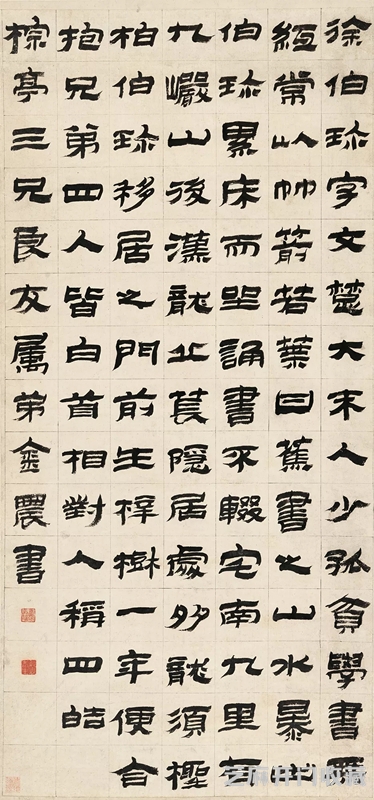 徐伯珍字文楚大末人少孤貧學書無
紙常以竹箭若葉甘蕉書之山水暴出
伯珍累床而坐誦書不輟宅南九里有
九巖山後漢龍丘萇隱居處多龍須檉
柏伯珍移居之門前生梓樹一年便合
抱兄弟四人皆白首相對人稱四皓
棕亭三兄良友属弟金農書